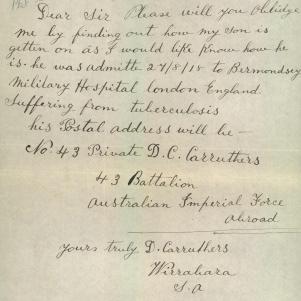 Dear Sir Please will you Oblidge
me by finding out how my son is
getten on as I would like Know how he
is. he was admitte 27/8/18 to Bermondsey
Military Hospital London England.
Suffering from tuberculosis
his Postal address will be —
No. 43 Private D. C. Carruthers
43 Battalion
Australian Imperial Force
Abroad
Yours truly D. Carruthers
Wirrabara
S. A